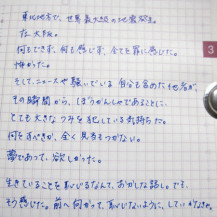 東北地方で、世界最大級の地震発生。
在大阪。
何もできず、何も感じず、全てを罪に感じた。
悔かった。
そして、ニュースや騒いでいる自分も含めた他者が、
その瞬間から、ぼうかんしゃであることに、
とても大きなつみを犯している気持ちだ。
何をすべきか、全く見当もつかない。
夢であって、欲しかった。
生きていることを恥じるなんて、おかしな話しです。
そう感じた。前へ向かって、恥じないように、していかなきゃ。
3